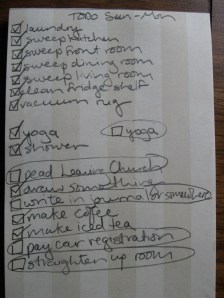 TODO Sun-Mon
laundry
sweep kitchen
sweep front room
sweep dining room
sweep living room
clean fridge shelf
vacuum rug
yoga yoga
shower
read Leaving Church
draw something
write in journal or somewhere
make coffee
make iced tea
pay car registration
straighten up room